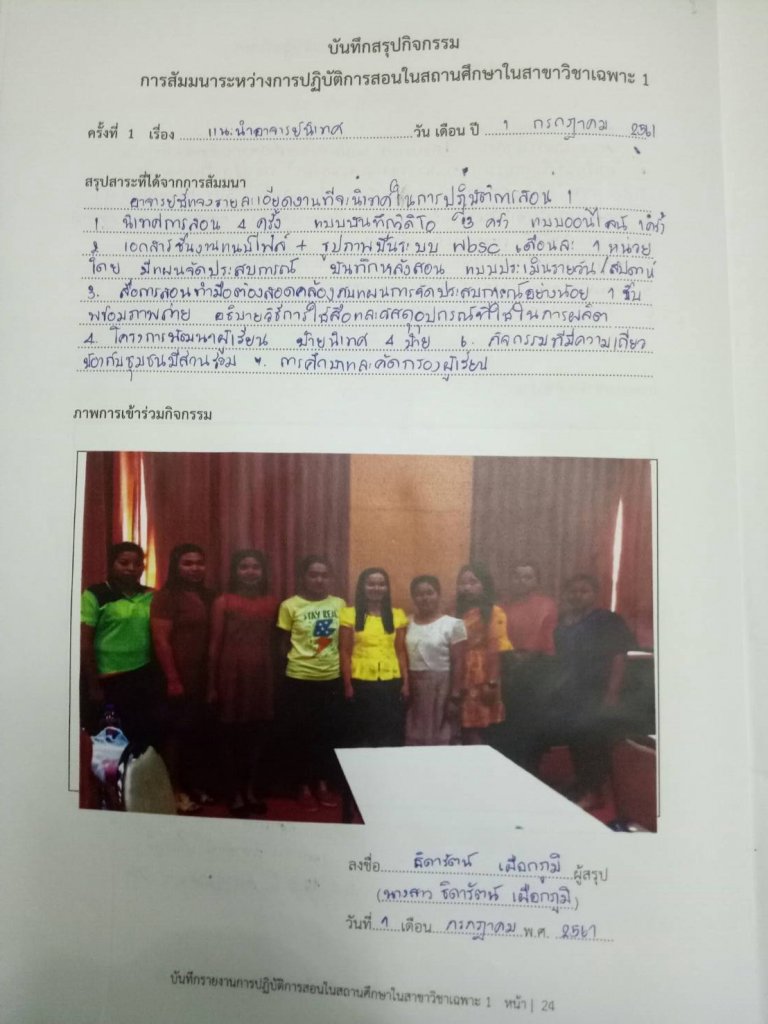 บันทึกสรุปกิจกรรม
การสัมมนาระหว่างการปฏิบัติการสอนในสถานศึกษาในสาขาวิชาเฉพาะ 1
ครั้งที่ 1 เรื่อง แนะนำอาจารย์นิเทศ วัน เดือน ปี 1 กรกฎาคม 2561
สรุปสาระที่ได้จากการสัมมนา
อาจารย์ชี้แจงรายละเอียดงานที่จะนิเทศในการปฏิบัติการสอน 1
1. นิเทศการสอน 4 ครั้ง แบบบันทึกวิดีโอ 3 ครั้ง แบบออนไลน์ 1 ครั้ง
2. เอกสารชิ้นงานแนบไฟล์ + รูปภาพขึ้นระบบ Wbsc เดือนละ 1 หน่วย
โดย มีแผนจัดประสบการณ์ บันทึกหลังสอน แบบประเมินรายวัน/สัปดาห์
3. สื่อการสอนทำมือต้องสอดคล้องกับแผนการจัดประสบการณ์อย่างน้อย 1 ชิ้น
พร้อมภาพถ่าย อธิบายวิธีการใช้สื่อและวัสดุอุปกรณ์ที่ใช้ในการผลิต
4. โครงการพัฒนาผู้เรียน ป้ายนิเทศ 4 ป้าย 6. กิจกรรมที่มีความเกี่ยว
ข้องกับชุมชนมีส่วนร่วม การศึกษาและคัดกรองผู้เรียน
ภาพการเข้าร่วมกิจกรรม
STAY REAL
ลงชื่อ ธิดารัตน์ เผือกภูมิ ผู้สรุป
(นางสาว ธิดารัตน์ เผือกภูมิ)
วันที่ 1 เดือน กรกฎาคม พ.ศ. 2561
บันทึกรายงานการปฏิบัติการสอนในสถานศึกษาในสาขาวิชาเฉพาะ 1 หน้า | 24